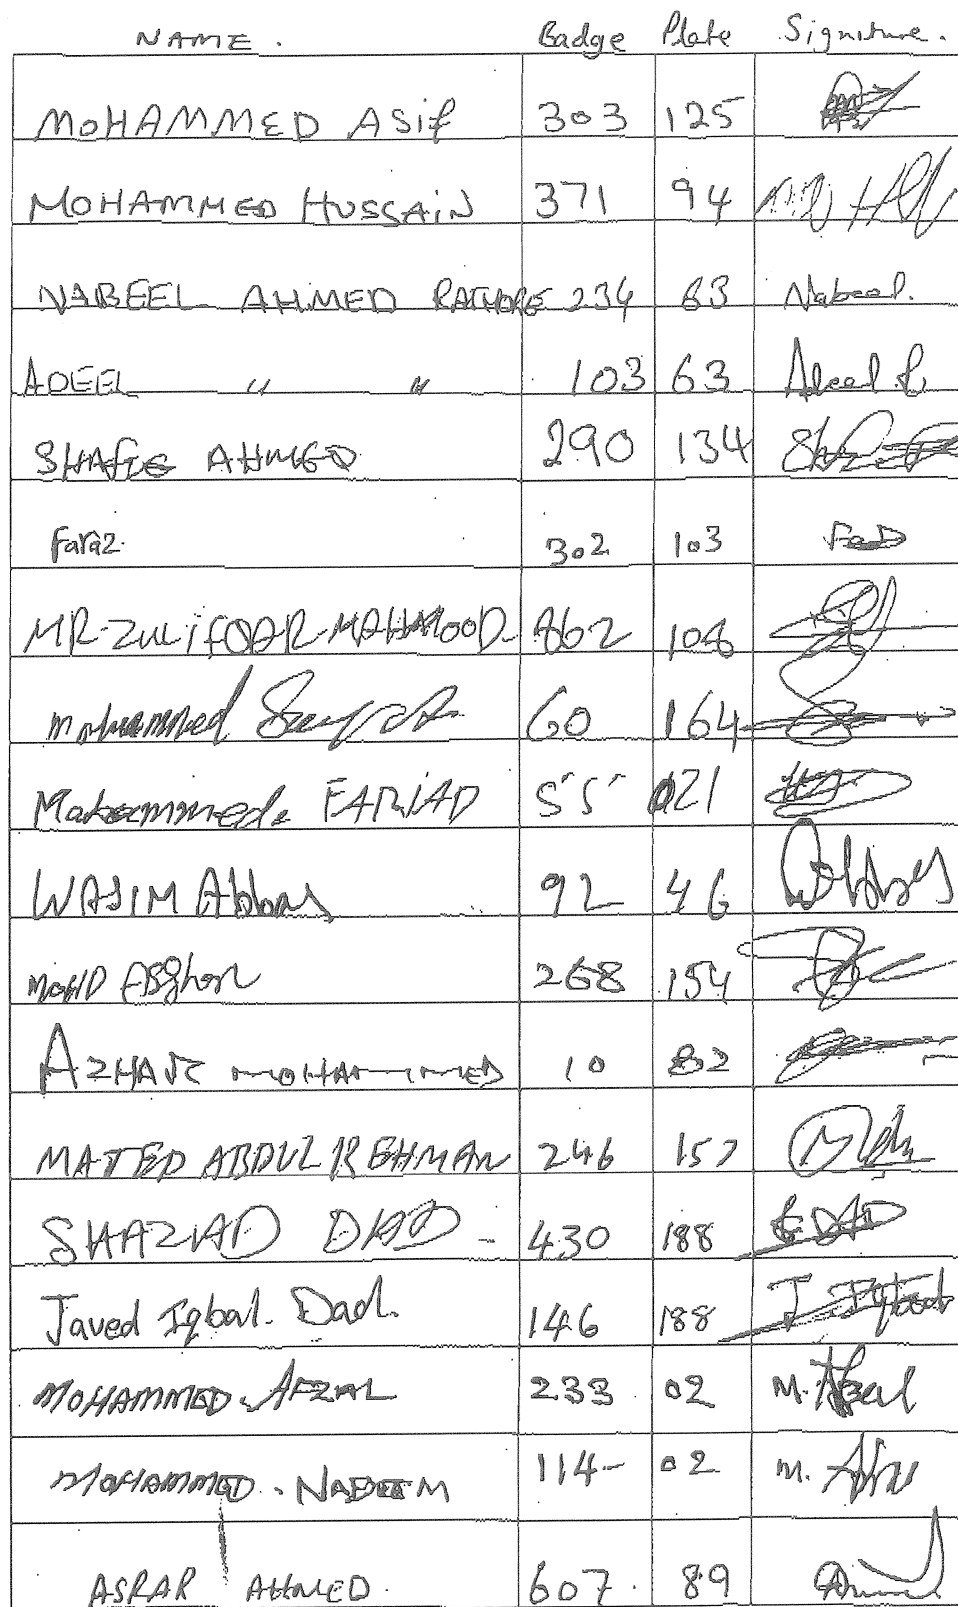 NAME. Badge Plate Signature.
MOHAMMED ASif 303 125
MOHAMMED HUSSAIN 371 94
NABEEL AHMED RATHORE 234 63 Nabeel.
ADEEL " " 103 63 Adeel R.
SHAFIQ AHMED 290 134
Faraz 302 103
MR ZULifQAR MAHMOOD 108
mohammed 60 164
Mohammed. FARIAD 55 021
WASIM Abbas 92 46 WAbbas
MOHD ASghar 268 154
AZHAR MOHAMMED 10 82
MAJEED ABDUL REHMAN 246 157
SHAZIAD DAD 430 188 DAD
Javed Iqbal. Dad. 146 188 J Iqbal
MOHAMMED. AFZAL 233 02 M. Afzal
MOHAMMED. NADEEM 114 02 M.
ASRAR AHMED. 607. 89